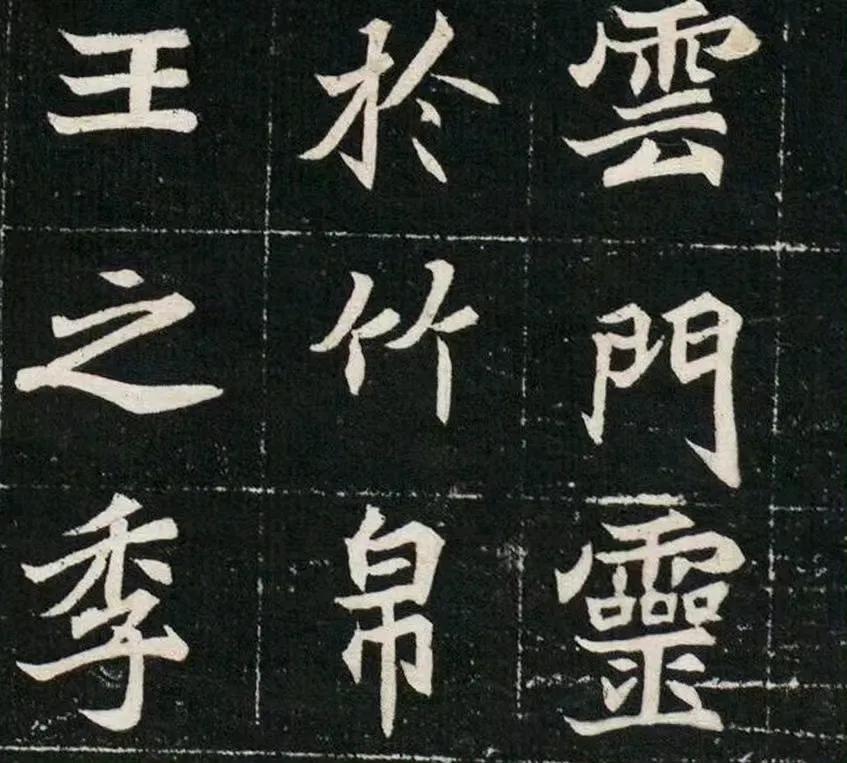 雲門靈
於竹帛
王之季